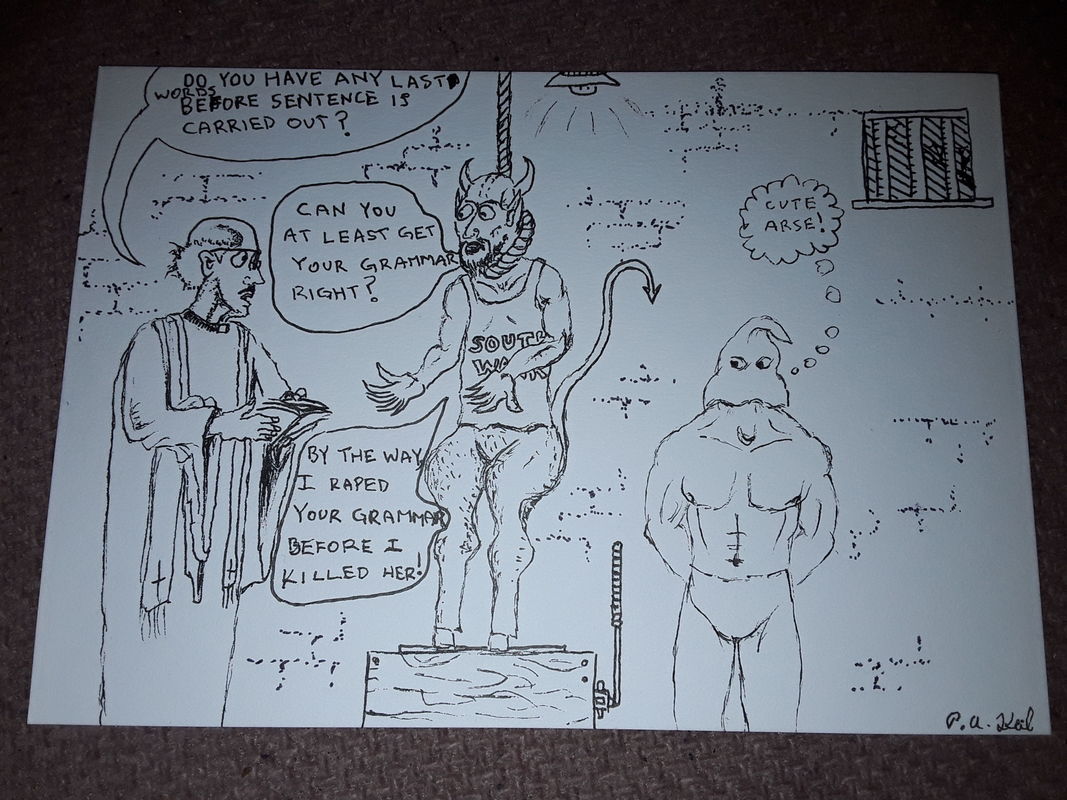 DO YOU HAVE ANY LAST
WORDS
BEFORE SENTENCE IS
CARRIED OUT?
CAN YOU
AT LEAST GET
YOUR GRAMMAR
RIGHT?
CUTE
ARSE!
SOUTH
BY THE WAY
I RAPED
YOUR GRAMMAR
BEFORE I
KILLED HER!
P.A.